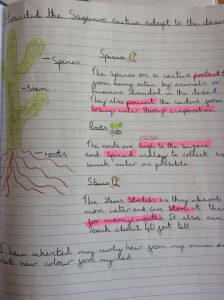 How did the Saguaro cactus adapt to the desert
Spines
Spines
The spines on a cactus protect
from being eaten by animals or
humans stranded in the desert
They also prevent the cactus from
losing water through evaporation
Stem
Roots
The roots are close
high to the surface
and spread widely to collect as
much water as possible
roots
Stems
The stems stretch as they absorb
more water and can store it
for many months It also can
reach about 40 feet tall
I have inherited my curly hair from my mum and
hair colour from my dad